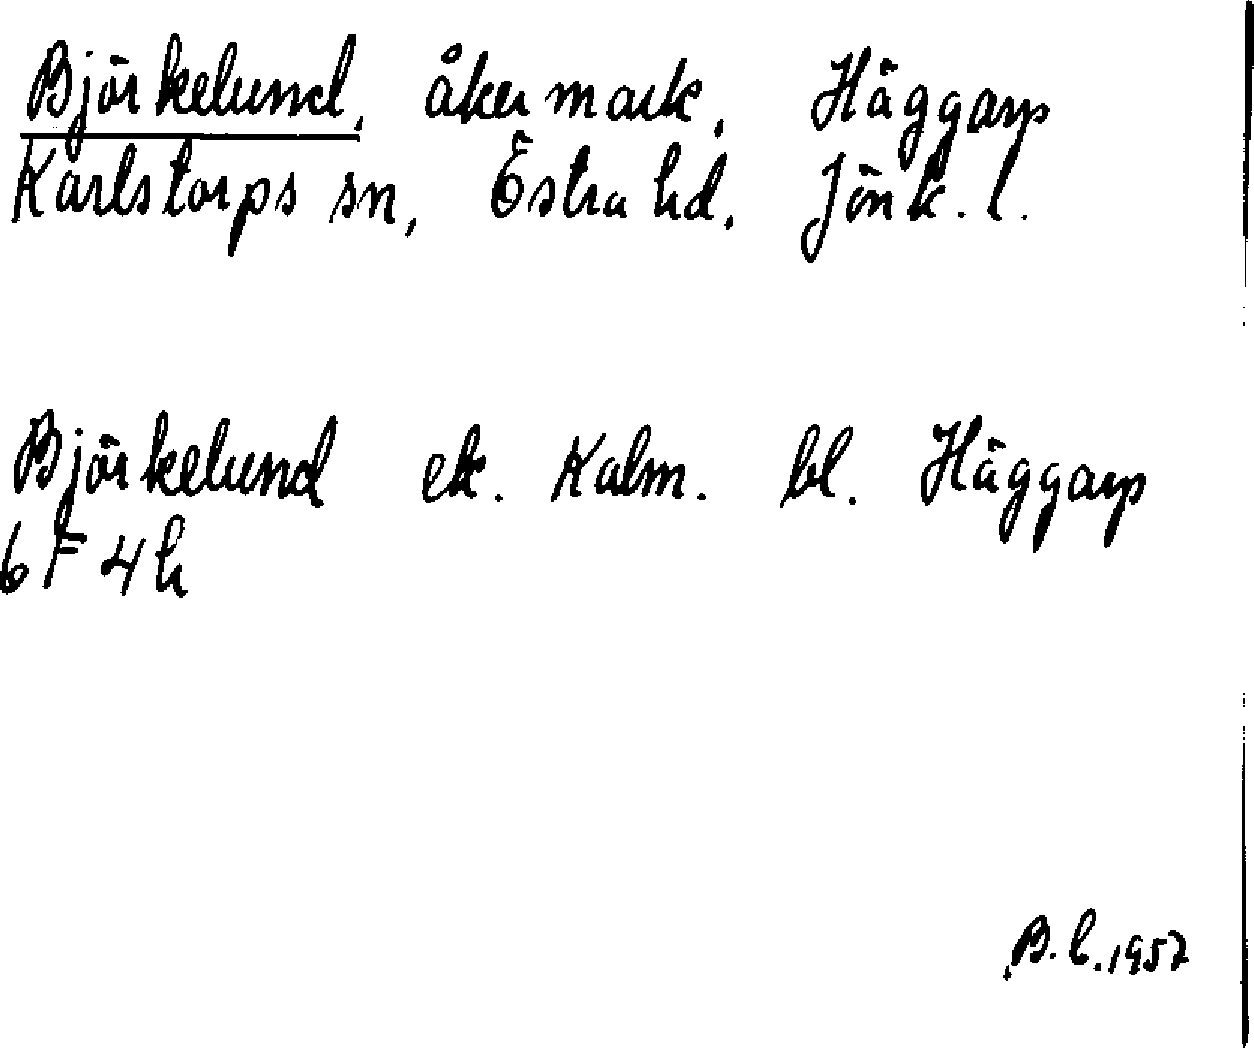 Björkelund, åkermark, Häggarp
Karlstorps sn, Östra hd. Jönk. l.
Björkelund ek. Kalm. bl. Häggarp
6F 4h
B. C. 1957